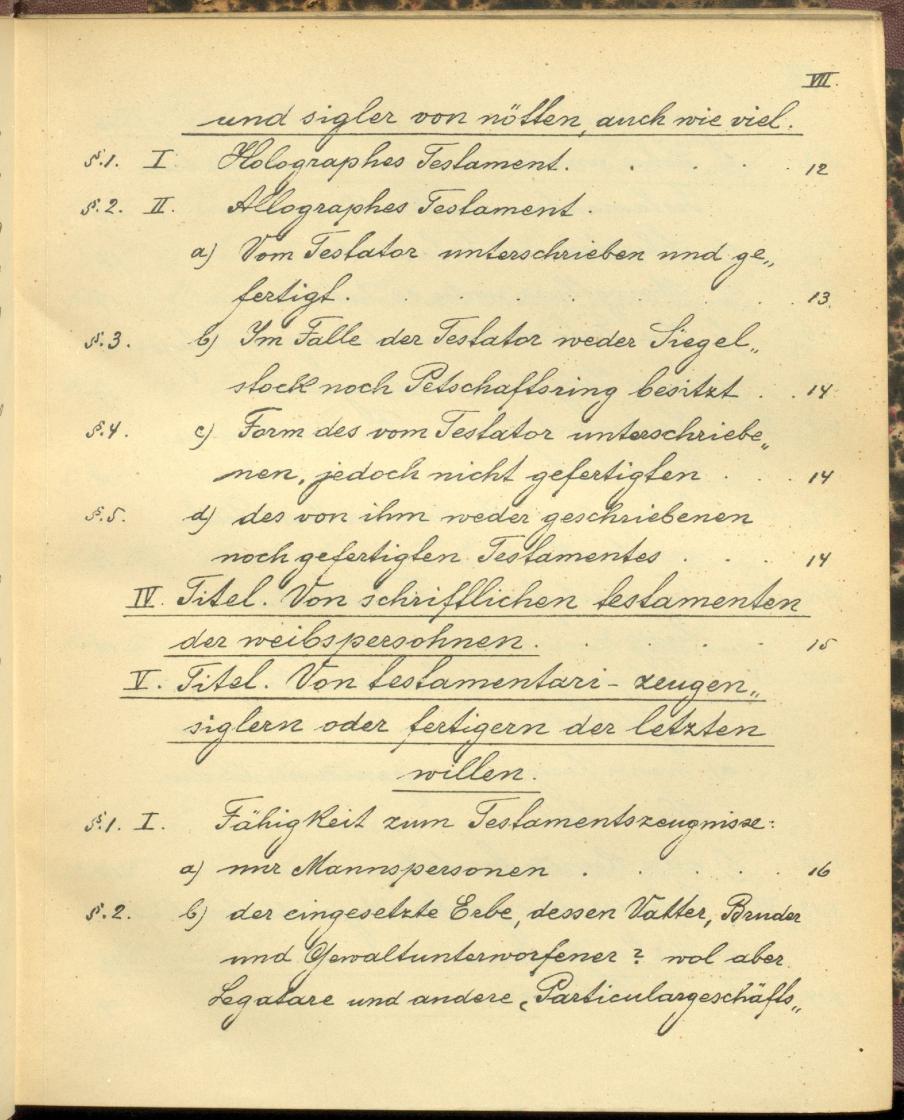 VII.
und sigler von nötten, auch wie viel.
§.1. I. Holographes Testament. . . . . 12
§.2. II. Allographes Testament .
a) Vom Testator unterschrieben und ge„
fertigt . . . . 13.
§.3. b) Im Falle der Testator weder Siegel„
stock noch Petschaftsring besitzt . . . 14
§.4. c) Form des vom Testator unterschriebe„
nen, jedoch nicht gefertigten . . . 14
§.5. d) des von ihm weder geschriebenen
noch gefertigten Testamentes . . . 14
IV. Titel. Von schriftlichen testamenten
der weibspersohnen. . . . . 15
V. Titel. Von testamentari - zeugen„
siglern oder fertigern der letzten
willen.
§.1. I. Fähigkeit zum Testamentszeugnisse:
a) nur Mannspersonen . . . . 16
§.2. b) der eingesetzte Erbe, dessen Vatter, Bruder
und Gewaltunterworfener? wol aber
Legatare und andere „Particulargeschäfts„